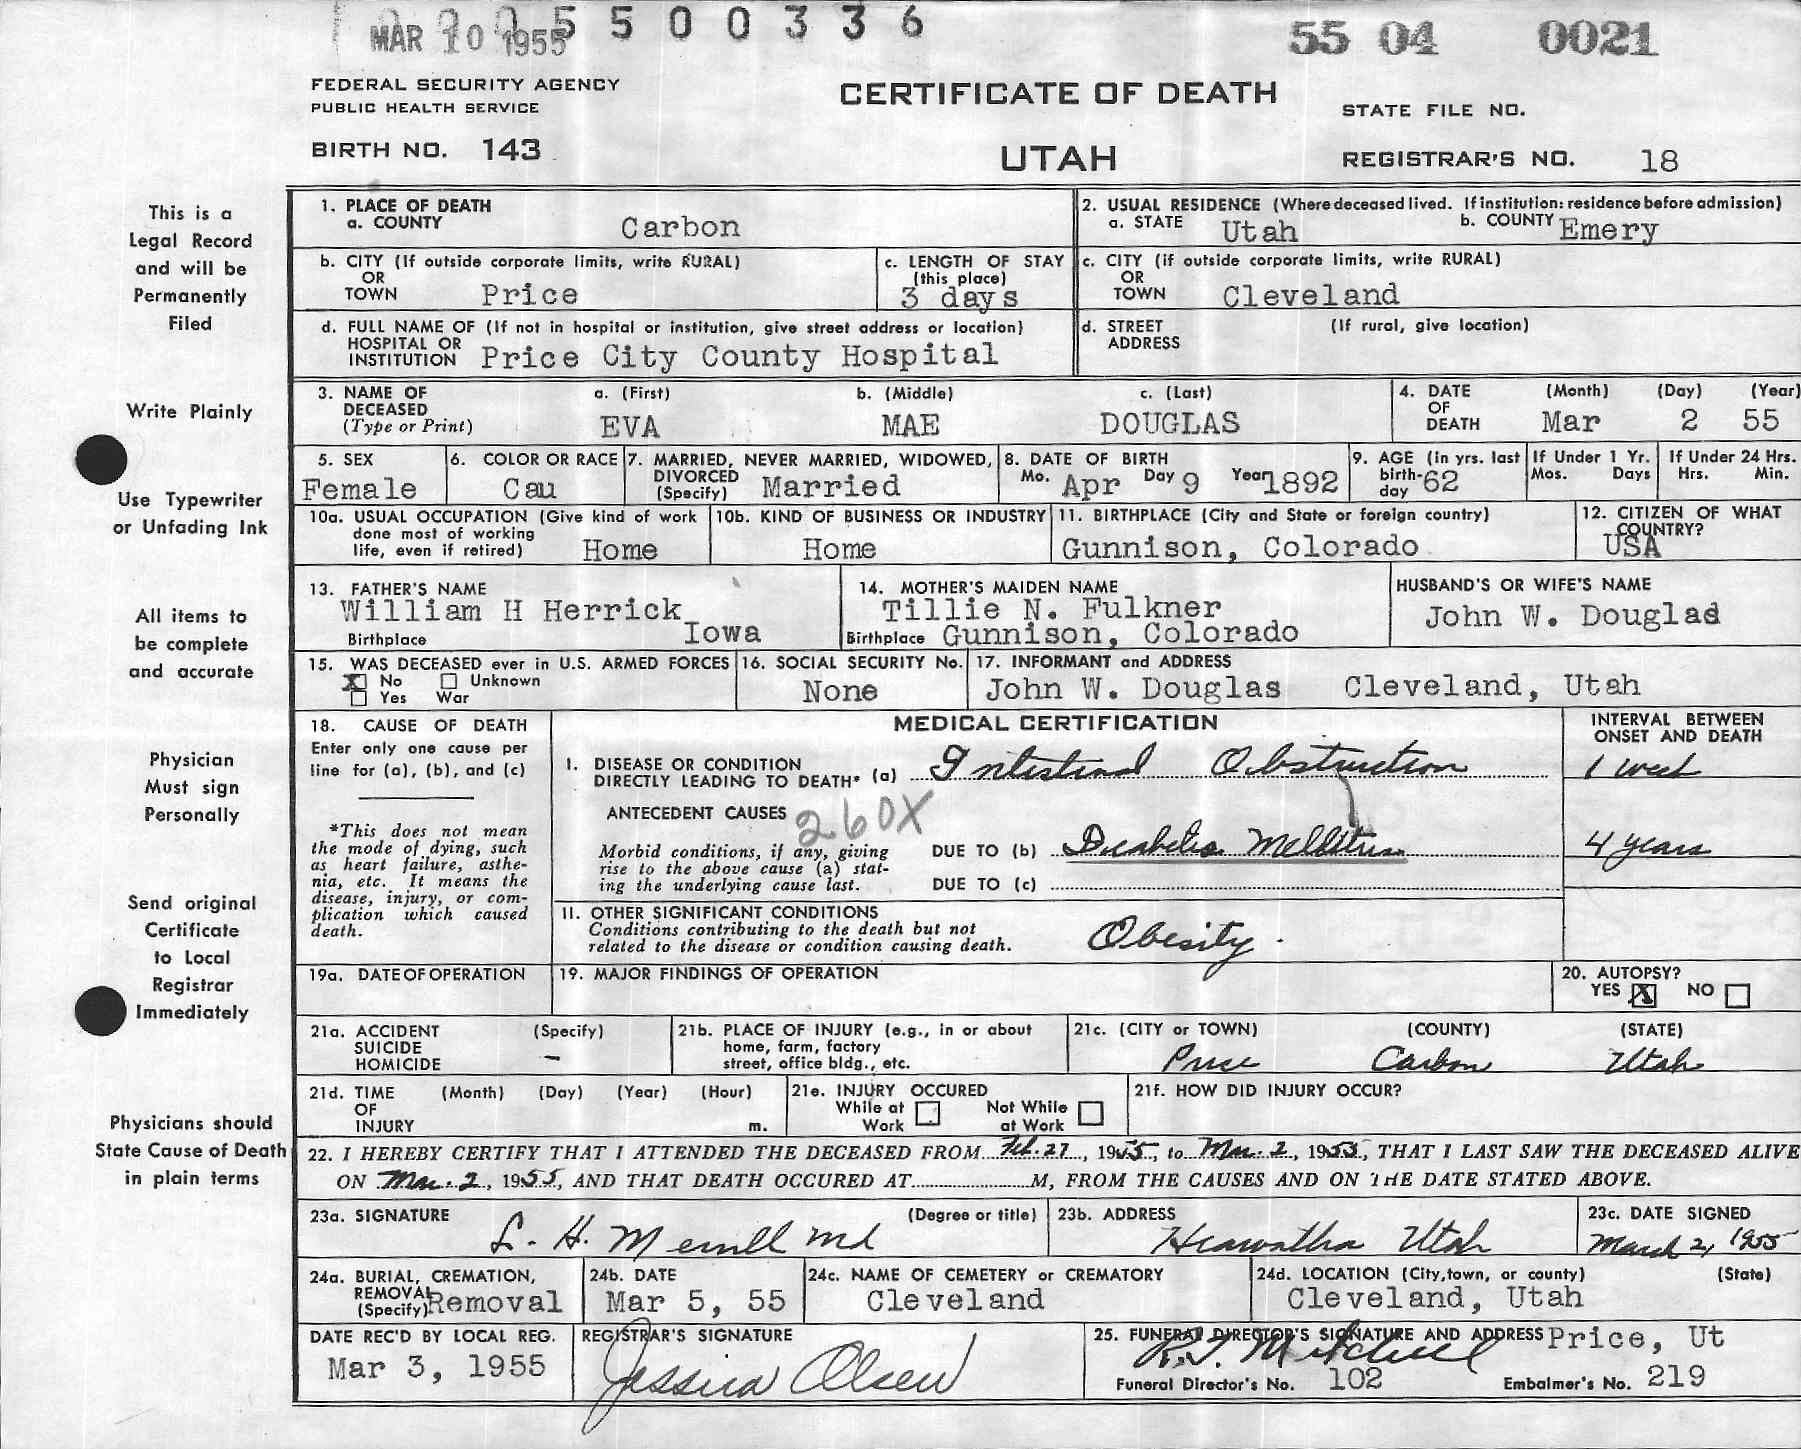 MAR 10 1955 5500336 55 04 0021
FEDERAL SECURITY AGENCY
PUBLIC HEALTH SERVICE
CERTIFICATE OF DEATH
STATE FILE NO.
BIRTH NO. 143
UTAH
REGISTRAR'S NO. 18
This is a
Legal Record
and will be
Permanently
Filed
Write Plainly
Use Typewriter
or Unfading Ink
All items to
be complete
and accurate
Physician
Must sign
Personally
Send original
Certificate
to Local
Registrar
Immediately
Physicians should
State Cause of Death
in plain terms
1. PLACE OF DEATH
a. COUNTY Carbon
2. USUAL RESIDENCE (Where deceased lived. If institution: residence before admission)
a. STATE Utah b. COUNTY Emery
b. CITY (If outside corporate limits, write RURAL)
OR
TOWN Price
c. LENGTH OF STAY
(this place)
3 days
c. CITY (if outside corporate limits, write RURAL)
OR
TOWN Cleveland
d. FULL NAME OF (If not in hospital or institution, give street address or location)
HOSPITAL OR
INSTITUTION Price City County Hospital
d. STREET (If rural, give location)
ADDRESS
3. NAME OF a. (First) b. (Middle) c. (Last)
DECEASED
(Type or Print) EVA MAE DOUGLAS
4. DATE (Month) (Day) (Year)
OF
DEATH Mar 2 55
5. SEX
Female
6. COLOR OR RACE
Cau
7. MARRIED, NEVER MARRIED, WIDOWED,
DIVORCED
(Specify) Married
8. DATE OF BIRTH
Mo. Apr Day 9 Year 1892
9. AGE (in yrs. last
birth-
day 62
If Under 1 Yr.
Mos. Days
If Under 24 Hrs.
Hrs. Min.
10a. USUAL OCCUPATION (Give kind of work
done most of working
life, even if retired) Home
10b. KIND OF BUSINESS OR INDUSTRY
Home
11. BIRTHPLACE (City and State or foreign country)
Gunnison, Colorado
12. CITIZEN OF WHAT
COUNTRY?
USA
13. FATHER'S NAME
William H Herrick
Birthplace Iowa
14. MOTHER'S MAIDEN NAME
Tillie N. Fulkner
Birthplace Gunnison, Colorado
HUSBAND'S OR WIFE'S NAME
John W. Douglas
15. WAS DECEASED ever in U.S. ARMED FORCES
X No Unknown
Yes War
16. SOCIAL SECURITY No.
None
17. INFORMANT and ADDRESS
John W. Douglas Cleveland, Utah
18. CAUSE OF DEATH
Enter only one cause per
line for (a), (b), and (c)
*This does not mean
the mode of dying, such
as heart failure, asthe-
nia, etc. It means the
disease, injury, or com-
plication which caused
death.
MEDICAL CERTIFICATION
INTERVAL BETWEEN
ONSET AND DEATH
I. DISEASE OR CONDITION
DIRECTLY LEADING TO DEATH* (a) Intestinal Obstruction 1 week
ANTECEDENT CAUSES 260X
Morbid conditions, if any, giving
rise to the above cause (a) stat-
ing the underlying cause last.
DUE TO (b) Diabetes Mellitus 4 years
DUE TO (c)
II. OTHER SIGNIFICANT CONDITIONS
Conditions contributing to the death but not
related to the disease or condition causing death.
Obesity.
19a. DATE OF OPERATION
19. MAJOR FINDINGS OF OPERATION
20. AUTOPSY?
YES X NO
21a. ACCIDENT (Specify)
SUICIDE
HOMICIDE –
21b. PLACE OF INJURY (e.g., in or about
home, farm, factory
street, office bldg., etc.
21c. (CITY or TOWN) (COUNTY) (STATE)
Price Carbon Utah
21d. TIME (Month) (Day) (Year) (Hour)
OF
INJURY m.
21e. INJURY OCCURED
While at Work Not While at Work
21f. HOW DID INJURY OCCUR?
22. I HEREBY CERTIFY THAT I ATTENDED THE DECEASED FROM Feb. 27, 1955, to Mar. 2, 1955, THAT I LAST SAW THE DECEASED ALIVE
ON Mar. 2, 1955, AND THAT DEATH OCCURED AT M, FROM THE CAUSES AND ON THE DATE STATED ABOVE.
23a. SIGNATURE (Degree or title)
L. H. Merrill md
23b. ADDRESS
Hiawatha Utah
23c. DATE SIGNED
March 2, 1955
24a. BURIAL, CREMATION,
REMOVAL
(Specify) Removal
24b. DATE
Mar 5, 55
24c. NAME OF CEMETERY or CREMATORY
Cleveland
24d. LOCATION (City, town, or county) (State)
Cleveland, Utah
DATE REC'D BY LOCAL REG.
Mar 3, 1955
REGISTRAR'S SIGNATURE
Jessica Olsen
25. FUNERAL DIRECTOR'S SIGNATURE AND ADDRESS Price, Ut
R. J. Mitchell
Funeral Director's No. 102 Embalmer's No. 219